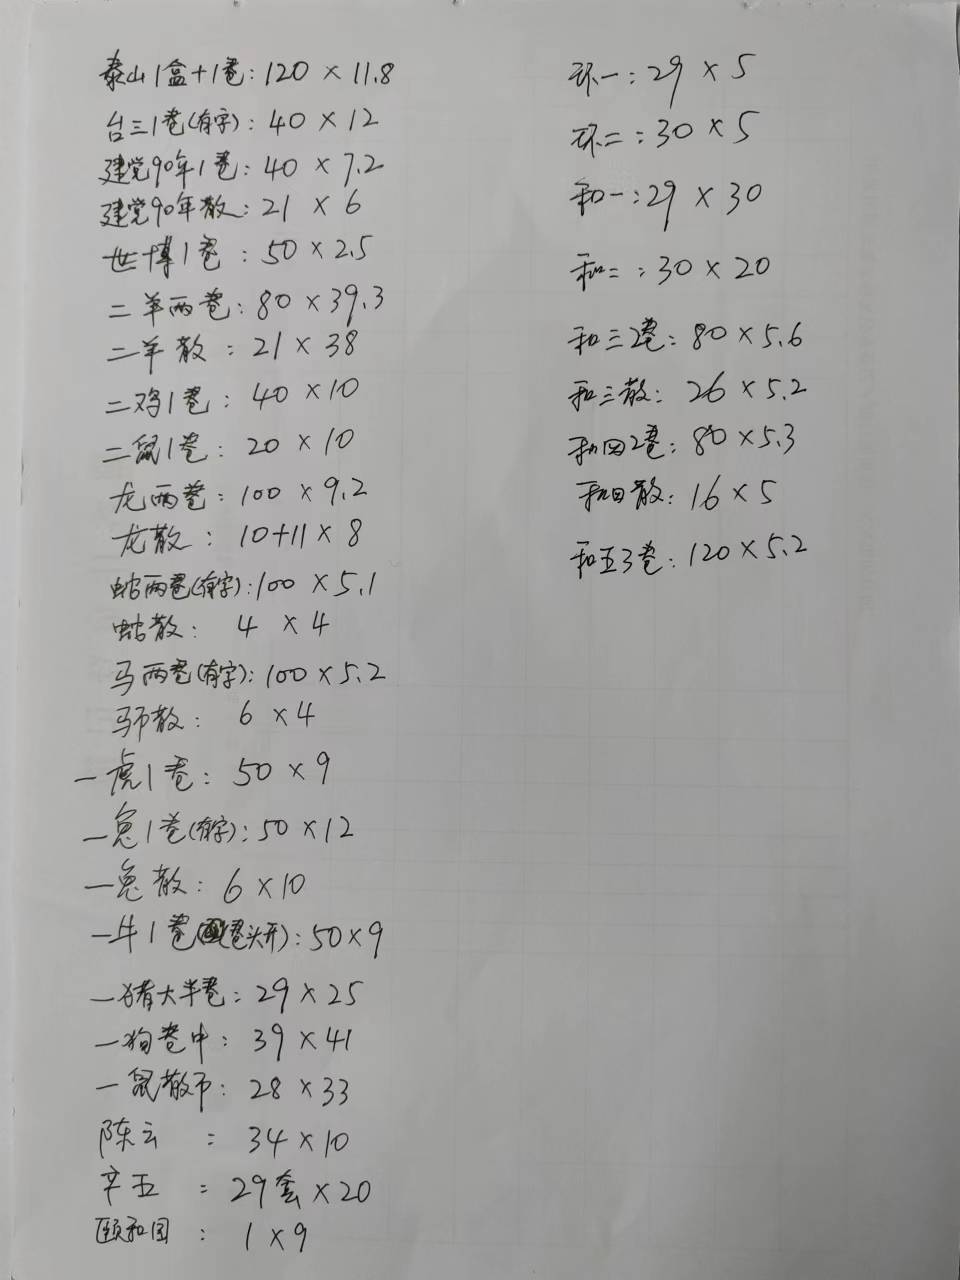 泰山1盒+1卷:120×11.8
台三1卷(有字):40×12
建党90年1卷:40×7.2
建党90年散:21×6
世博1卷:50×2.5
二羊两卷:80×39.3
二羊散:21×38
二鸡1卷:40×10
二鼠1卷:20×10
龙两卷:100×9.2
龙散:10+11×8
蛇两卷(有字):100×5.1
蛇散:4×4
马两卷(有字):100×5.2
马币散:6×4
一虎1卷:50×9
一兔1卷(有字):50×12
一兔散:6×10
一牛1卷(卷头开):50×9
一猪大半卷:29×25
一狗卷中:39×41
一鼠散币:28×33
陈云:34×10
辛五:29套×20
颐和园:1×9
环一:29×5
环二:30×5
和一:29×30
和二:30×20
和三2卷:80×5.6
和三散:26×5.2
和四2卷:80×5.3
和四散:16×5
和五3卷:120×5.2